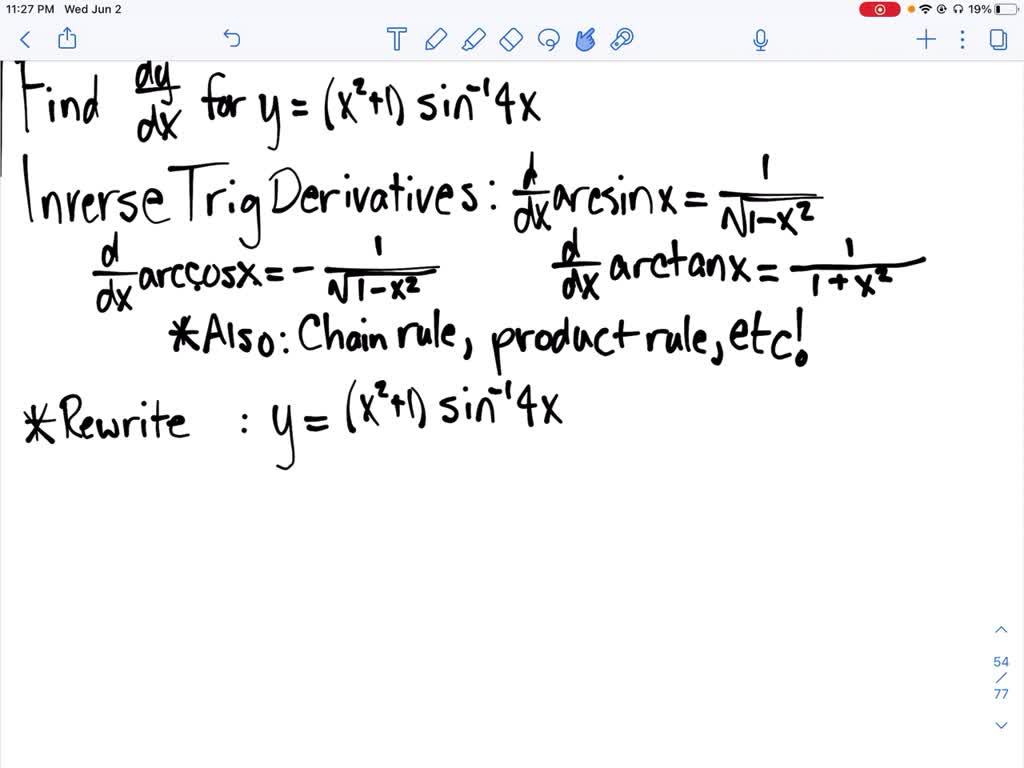 11:27 PM Wed Jun 2 19%
T
Find dy/dx for y = (x²+1) sin⁻¹4x
Inverse Trig Derivatives: d/dx arcsinx = 1/√1-x²
d/dx arccosx = - 1/√1-x² d/dx arctanx = 1/1+x²
*Also: Chain rule, product rule, etc!
*Rewrite : y = (x²+1) sin⁻¹4x
54
/
77